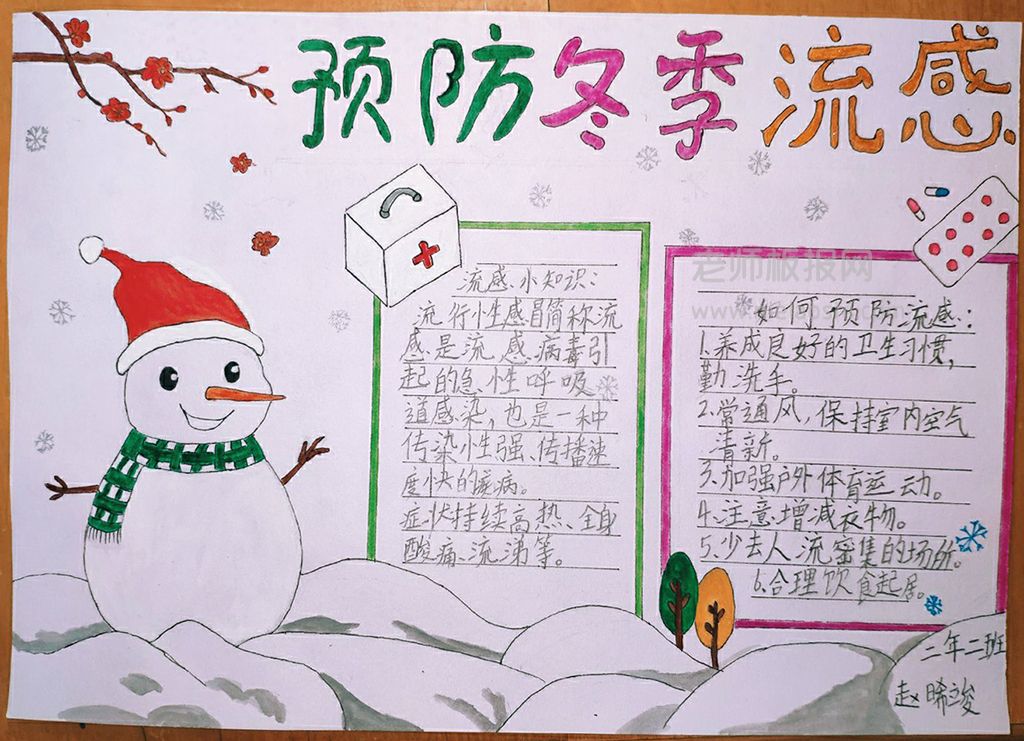 预防冬季流感
流感小知识：
流行性感冒简称流
感是流感病毒引
起的急性呼吸
道感染，也是一种
传染性强、传播速
度快的疾病。
症状持续高热、全身
酸痛、流涕等。
老师板报网
如何预防流感：
1.养成良好的卫生习惯，
勤洗手。
2.常通风，保持室内空气
清新。
3.加强户外体育运动。
4.注意增减衣物。
5.少去人流密集的场所。
6.合理饮食起居。
二年二班
赵晞